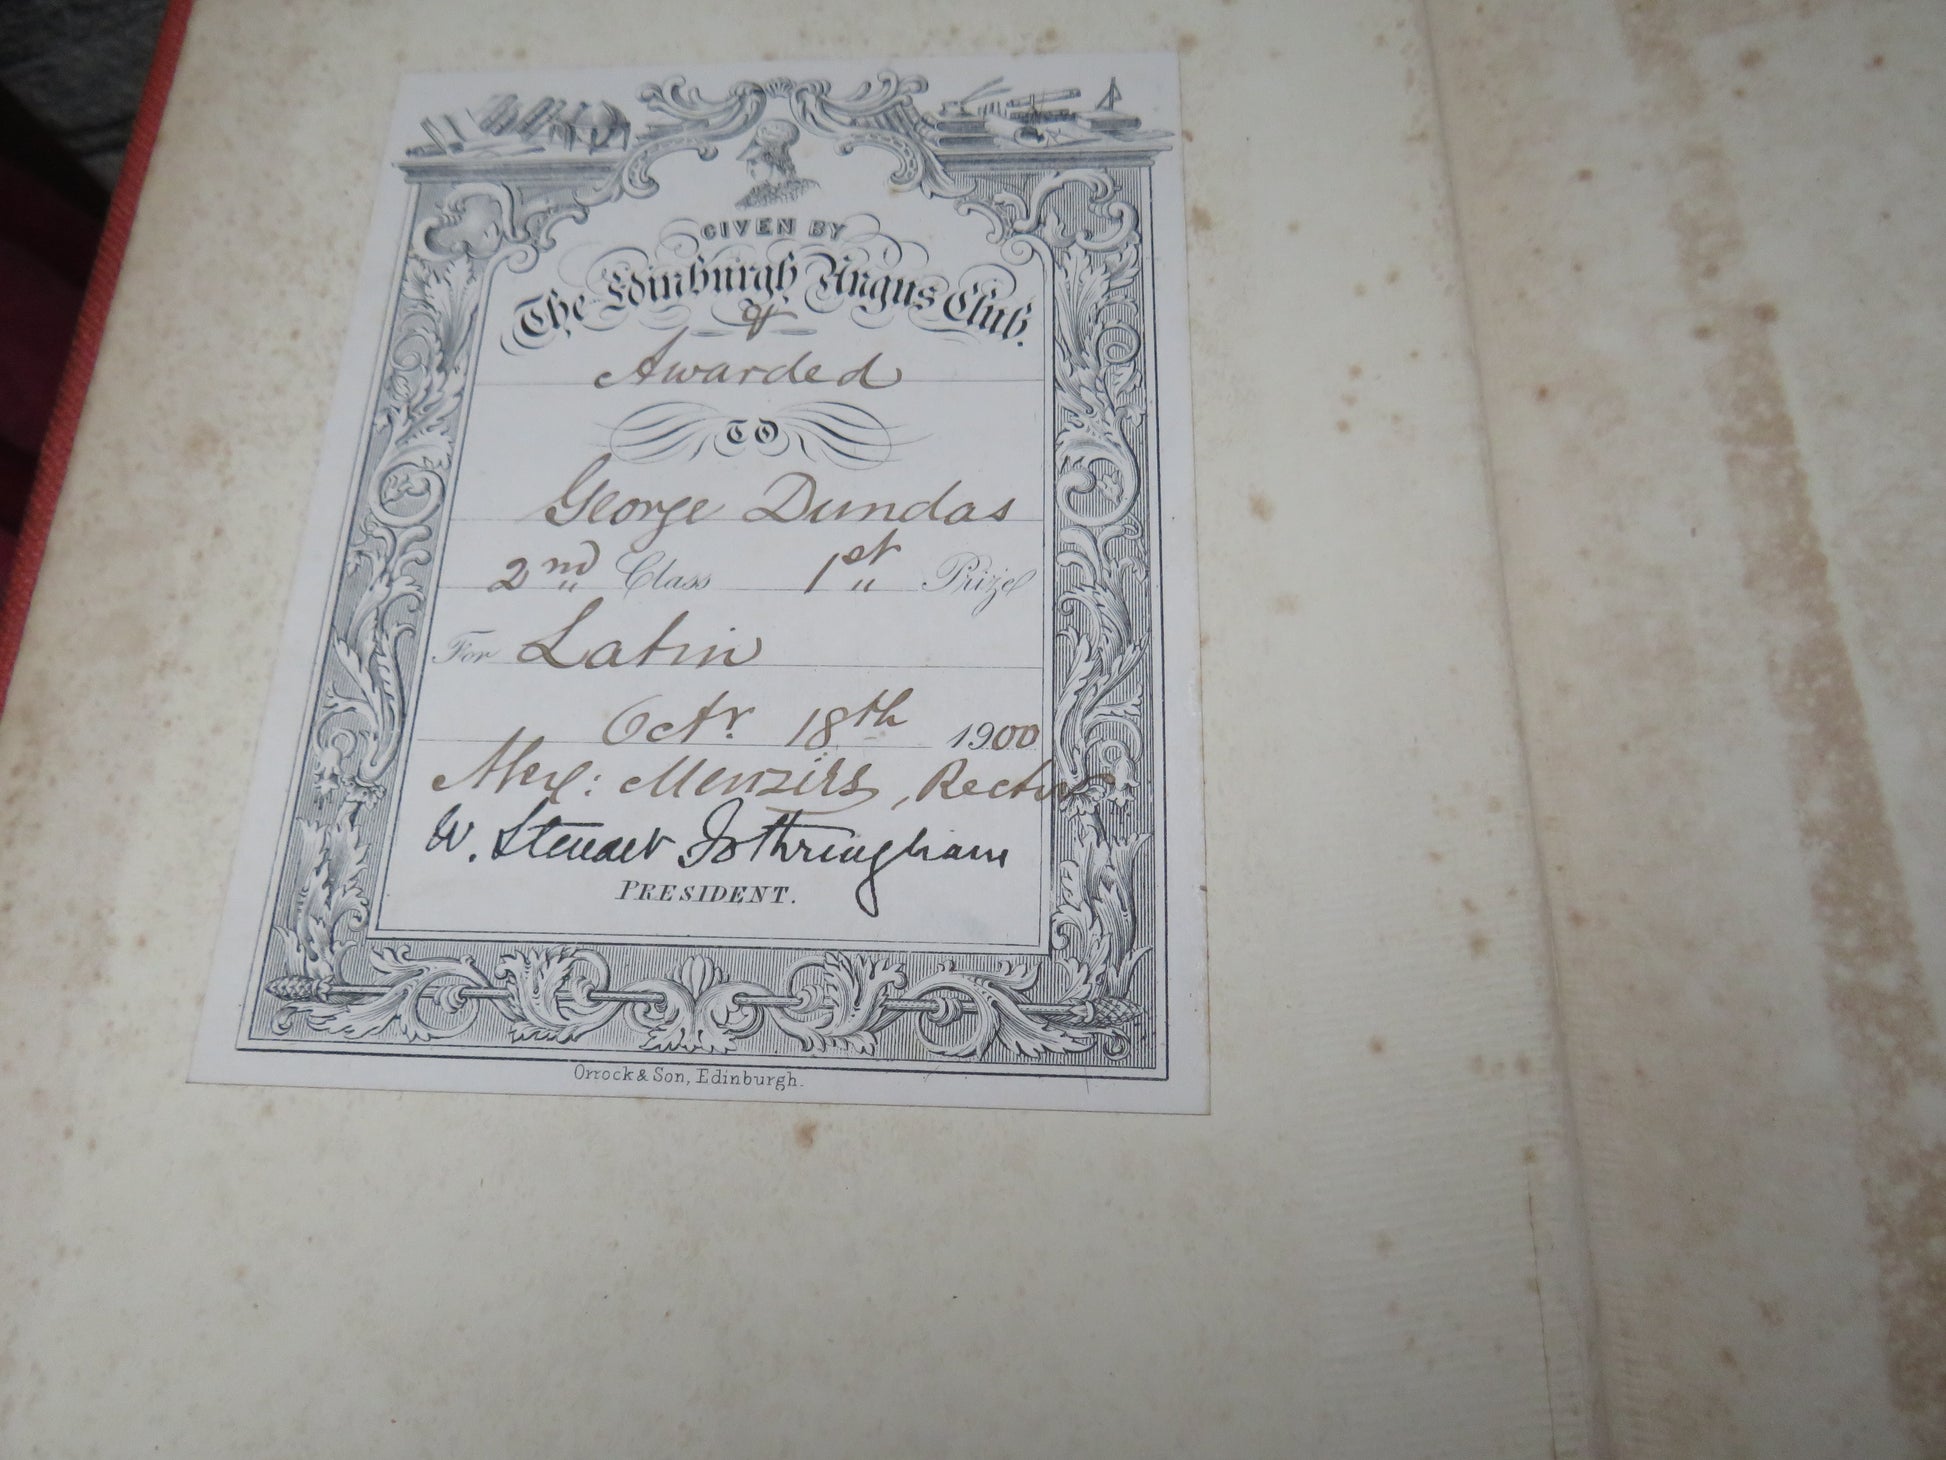 GIVEN BY
The Edinburgh Angus Club.
of
Awarded
TO
George Dundas
2nd Class 1st Prize
For Latin
Octr. 18th 1900
Alex: Menzies, Rector
W. Steuart Fothringham
PRESIDENT.
Orrock & Son, Edinburgh.